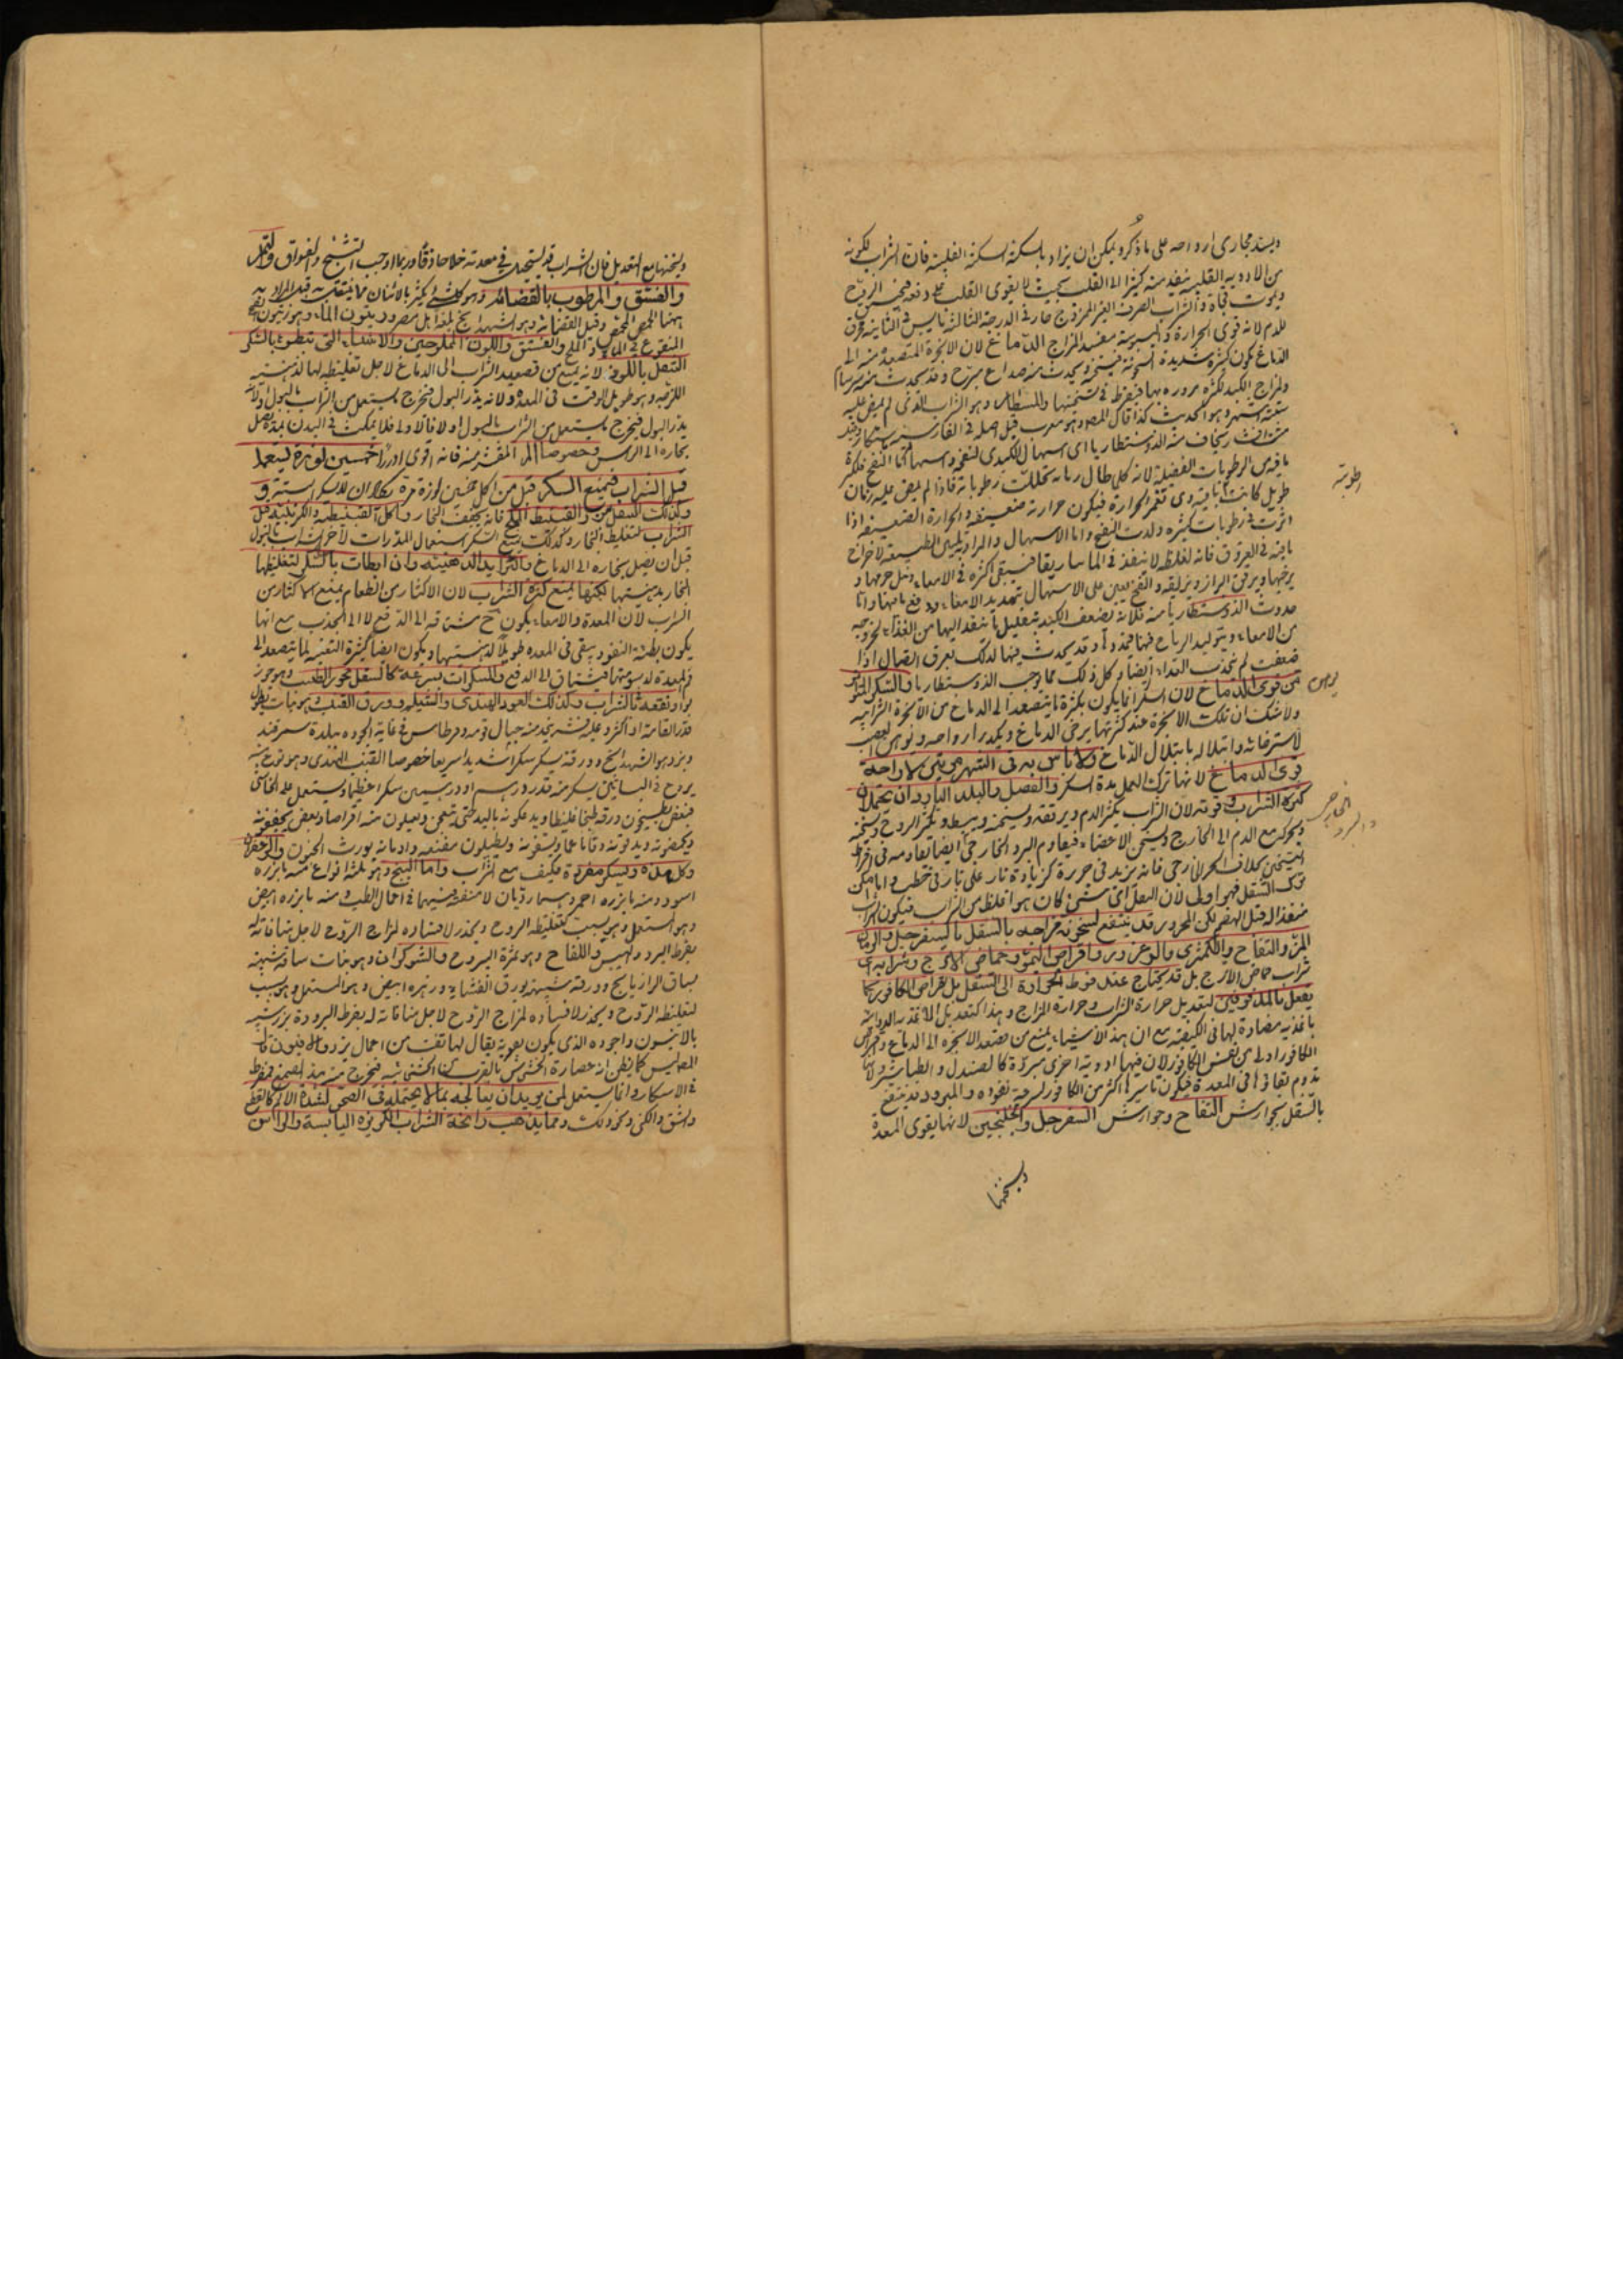 ويسد مجارى ارواحه على ما ذكر ويمكن ان يراد بالسكتة السكتة القلبية فان الشراب لكونه
من الادوية القلبية ينفذ منه كثير الى القلب بحيث لا يقوى القلب على دفعه فيختنق الروح
ويموت فجاة والشراب الصرف الغير الممزوج حار فى الدرجة الثالثة يابس فى الثانية محرق
للدم لانه قوى الحرارة واليبوسة مفسد لمزاج الدماغ لان الابخرة المتصعدة منه الى
الدماغ تكون كثيرة شديدة السخونة فيسخنه ويحدث منه صداع مبرح وقد يحدث منه سرسام
ولمزاج الكبد لكثرة مروره بها فيفرط فى تسخينها والمسطار وهو الشراب الذى لم يمض عليه
ستة اشهر وهو الحديث كذا قال المص وهو معرب قيل اصله فى الفارسية
يخاف منه الذوسنطاريا اى اسهال الكبدى لنفخه واسهاله اما النفخ فلكثرة
ما فيه من الرطوبات الفضلية لانه كل ما طال زمانه تحللت رطوباته فاذا لم يمض عليه زمان
طويل كانت باقية وهى تغمر الحرارة فيكون حرارته ضعيفة والحرارة الضعيفة اذا
اثرت فى رطوبات كثيرة ولدت النفخ واما الاسهال
مائيته فى العروق فانه لغلظه لا ينفذ فى الماساريقا فيبقى اكثره فى الامعاء
يرخيها ويرقق البراز ويزلقه والنفخ يعين على الاسهال بتمديد الامعاء ودفع ما فيها واما
حدوث الذوسنطاريا منه فلانه يضعف الكبد بتقليل ما ينفذ اليها من الغذاء لخروجه
من الامعاء ويتوليد الرياح فيها فيمددها وقد يحدث فيها لذلك تفرق اتصال اذا
ضعفت لم تجذب الغذاء ايضا وكل ذلك مما يوجب الذوسنطاريا والسكر المتواتر
يوهن قوى الدماغ لان السكر انما يكون بكثرة ما يتصعد الى الدماغ من الابخرة الشرابية
ولا شك ان تلك الابخرة عند كثرتها يرخى الدماغ ويكدر ارواحه ويوهن العصب
لاسترخائه وابتلاله بابتلال الدماغ ولا باس به فى الشهر مرتين لاراحة
قوى الدماغ لانها تترك العمل مدة السكر والفصل والبلد الباردان يحتملان
كثرة الشراب وقوته لان الشراب يكثر الدم ويرققه ويسخنه ويبسطه ويكثر الروح ويسخنه
ويحركه مع الدم الى الخارج ويسخن الاعضاء فيقاوم البرد الخارجى ايضا بقاومه فى افراط
التسخين بخلاف الحر الخارجى فانه يزيد فى حره كزيادة نار على نار فى حطب وان امكن
ترك التنقل فهو اولى لان النقل اى شئ كان هو اغلظ من الشراب فيكون الشراب
منفذا له قبل الهضم لكن المحرور قد ينتفع لسخونة مزاجه بالتنقل بالسفرجل والرمان
المز والتفاح والكمثرى والزعرور واقراص الليمو وحماض الاترج وشرابه اى
شراب حماض الاترج بل قد يحتاج عند فرط الحرارة الى التنقل بل باقراص الكافور كما
يفعل بالمدقوقين لتعديل حرارة الشراب وحرارة المزاج وهذا كتعديل الاغذية الدوائية
باغذية مضادة لها فى الكيفية مع ان هذه الاشياء يمنع من تصعد الابخرة الى الدماغ واقراص
الكافور اولى من نفس الكافور لان فيها ادوية اخرى مبردة كالصندل والطباشير ولانها
تدوم بقاؤها فى المعدة فيكون تاثيرها اكثر من الكافور لسرعة نفوذه والمبرود قد ينتفع
بالتنقل بجوارش التفاح وجوارش السفرجل والجلنجبين لانها يقوى المعدة
ويسخنها
رطوبة
يوهن
الخارجى
والبرد
ويسخنها مع التعديل فان الشراب قد يستحيل فى معدته خلا حاذقا وربما اوجب التشنج والفواق والنقل
والفستق والمرطوب بالقضامة وهو كل شئ يكسر بالاسنان مما يتنقل به
ههنا الحمص المحمص وقيل القضامة وهو الشهدانج بلغة اهل مصر وزيتون الماء وهو زيتون الفج
المنقوع فى الماء والملح والفستق واللوز المملوحين والاشياء التى تبطئ بالسكر
التنقل باللوز لانه يمنع من تصعيد الشراب الى الدماغ لاجل تغليظه لها لدهنيته
اللزجة وهو طويل الوقت فى المعدة ولانه يدر البول فيخرج ما يستعمل من الشراب بالبول اولا
يدر البول فيخرج ما يستعمل من الشراب بالبول اولا فاولا فلا يمكث فى البدن مدة يصل
بخاره الى الراس وخصوصا المر المقشر منه فانه اقوى ادرارا خمسين لوزة يستعمل
قبل الشراب فيمنع السكر قيل من اكل خمسين لوزة مرة لم يسكر
وكذلك التنقل من والقنبيط الملح فانه يجفف البخار واكل القنبيطية والكرنبية قبل
الشراب لتغليظ البخار وكذلك يمنع السكر استعمال المدرات لاخراج الشراب بالبول
قبل ان يصل بخاره الى الدماغ والثرايد الدهنية وان ابطات بالسكر لتغليظها
البخار بدهنيتها لكنها يمنع كثرة الشراب لان الاكثار من الطعام يمنع الاكثار من
الشراب لان المعدة والامعاء يكون ح مشتاقة الى الدفع لا الى الجذب مع انها
يكون بطيئة النفوذ يبقى فى المعدة طويلا لدهنيتها ويكون ايضا كثيرة التغثية لما يتصعد الى
فم المعدة لدسومتها فيشتاق الى الدفع والمسكرات بسرعة كالتنقل بجوز الطيب وهو جوز
بوا ونقعه فى الشراب وكذلك العود الهندى والشيلم وورق القنب وهو نبات يطول
قدر القامة او اكثر وعليه قشر يتخذ منه حبال قوية وقرطاس فى غاية الجودة ببلدة سمرقند
وبزره هو الشهدانج وورقه يسكر سكرا شديدا سريعا خصوصا القنب الهندى وهو نوع منه
يزرع فى البساتين يسكر منه قدر درهم او درهمين سكرا عظيما ويستعمل على انحاء شتى
فبعض يطبخون ورقه طبخا غليظا ويدعكونه باليد حتى يتعجن ويعملون منه اقراصا وبعض يجففونه
ويحمصونه ويدقونه دقا ناعما ويسفونه ويطيلون مضغه وادمانه يورث الجنون والزعفران
وكل هذه يسكر مفردة فكيف مع الشراب واما البنج وهو ثلثة انواع منه ما بزره
اسود ومنه ما بزره احمر وهما رديان لا منفعة فيهما فى اعمال الطب ومنه ما بزره ابيض
وهو المستعمل وهو يسبت لتغليظه الروح ويخدر لافساده لمزاج الروح لاجل منافاته له
بفرط البرد واليبس واللفاح وهو ثمرة اليبروح والشوكران وهو نبات ساقه شبيهة
بساق الرازيانج وورقه شبيهة بورق القثاء وزهره ابيض وهو المستعمل وهو يسبت
لتغليظه الروح ويخدر لافساده لمزاج الروح لاجل منافاته له بفرط البرودة بزره شبيه
بالانيسون واجوده الذى يكون بقرية يقال لها تفت من اعمال يزد والافيون قال
المص ليس كما يظن انه عصارة الخشخاش بالقرب
فى الاسكار وانما يستعمل لمن يريد ان يعالجه بما لا يحتمله فى الصحو لشدة الالم كالقطع
والشق والكى ونحو ذلك ومما يذهب رائحة الشراب الكزبرة اليابسة والراسن